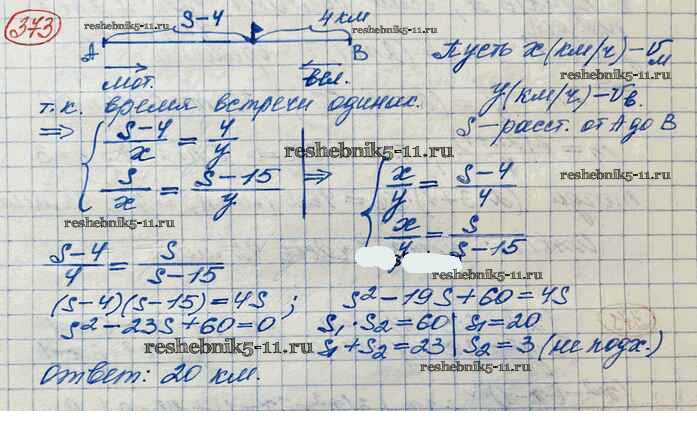 373
S-4
4 км
reshebnik5-11.ru
reshebnik5-11.ru
A
B
мот.
вел.
Пусть x (км/ч) - Vм
reshebnik5-11.ru
y (км/ч) - Vв.
S - расст. от A до B
т.к. время встречи одинак.
⇒ { (S-4)/x = 4/y
S/x = (S-15)/y | ⇒
{ x/y = (S-4)/4
x/y = S/(S-15)
reshebnik5-11.ru
reshebnik5-11.ru
reshebnik5-11.ru
reshebnik5-11.ru
(S-4)/4 = S/(S-15)
(S-4)(S-15) = 4S; S² - 19S + 60 = 4S
S² - 23S + 60 = 0
S₁ · S₂ = 60 | S₁ = 20
S₁ + S₂ = 23 | S₂ = 3 (не подх.)
reshebnik5-11.ru
reshebnik5-11.ru
Ответ: 20 км.